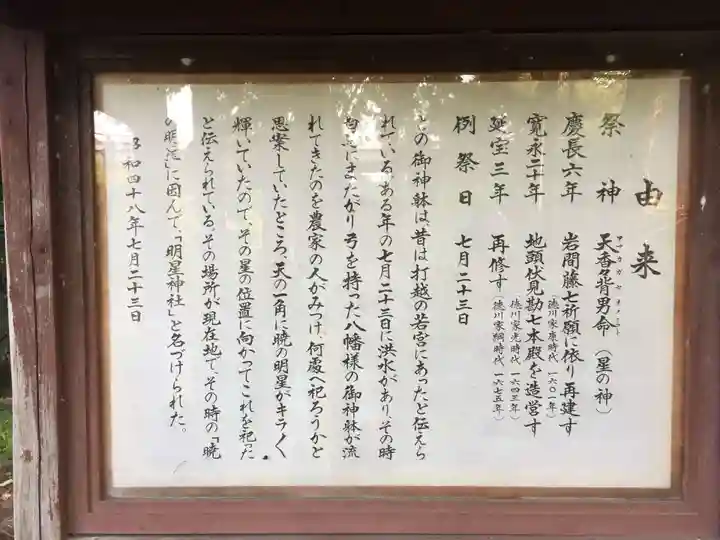 由来
祭神 天香々背男命（星の神）
慶長六年 岩間藤七祈願に依り再建す
（徳川家康時代 一六〇一年）
寛永二十年 地頭伏見勘七本殿を造営す
（徳川家光時代 一六四三年）
延宝三年 再修す（徳川家綱時代 一六七五年）
例祭日 七月二十三日
この御神躰は、昔は打越の若宮にあったと伝えら
れている。ある年の七月二十三日に洪水があり、その時
にまたがり弓を持った八幡様の御神躰が流
れてきたのを農家の人がみつけ、何處へ祀ろうかと
思案していたところ、天の一角に暁の明星がキラ〱
輝いていたので、その星の位置に向かってこれを祀った
と伝えられている。その場所が現在地で、その時の「暁
の明星」に因んで、「明星神社」と名づけられた。
昭和四十八年七月二十三日